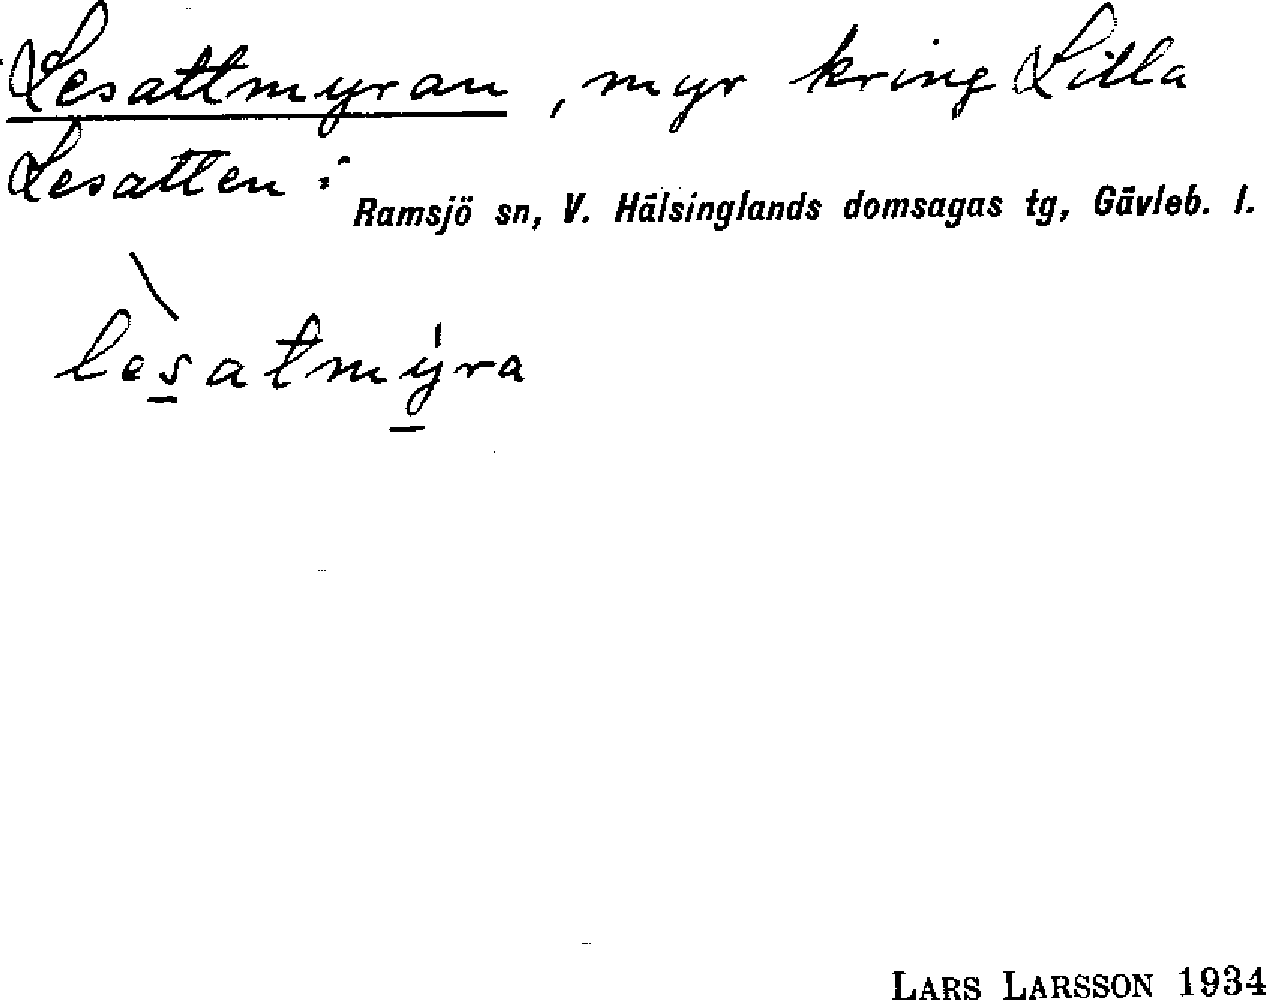 Lesattmyran, myr kring Lilla
Lesatten i
Ramsjö sn, V. Hälsinglands domsagas tg, Gävleb. l.
lèsatmýra
LARS LARSSON 1934